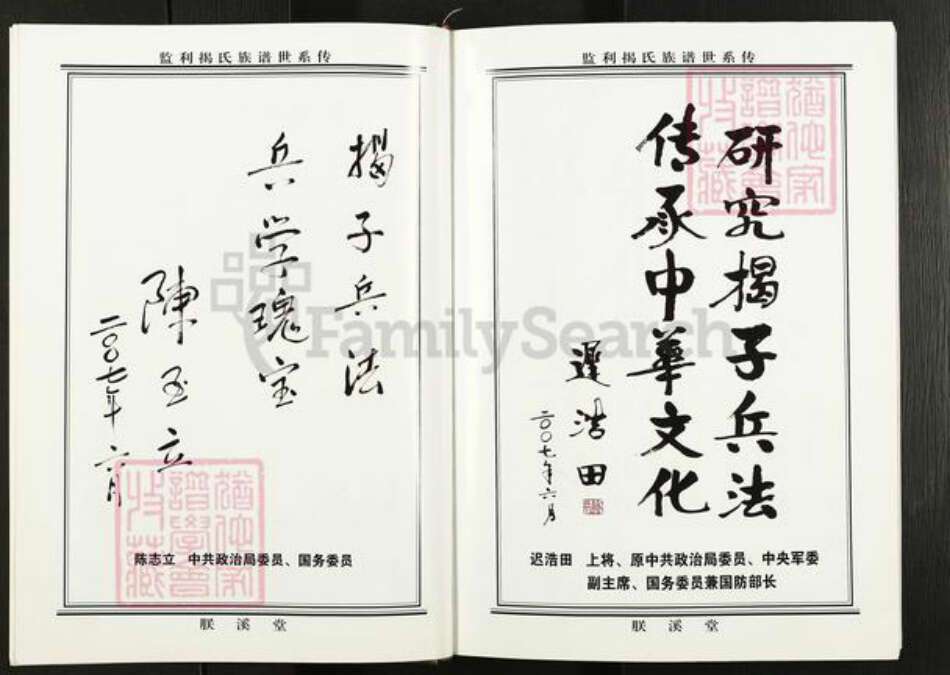 监利揭氏族谱世系传
研究揭子兵法
传承中華文化
遲浩田
二〇〇七年六月
迟浩田 上将、原中共政治局委员、中央军委
副主席、国务委员兼国防部长
朕溪堂
监利揭氏族谱世系传
揭子兵法
兵学瑰宝
陳至立
二〇〇七年六月
陈志立 中共政治局委员、国务委员
朕溪堂
FamilySearch
猶他家
譜學會
收藏
猶他家
譜學會
收藏